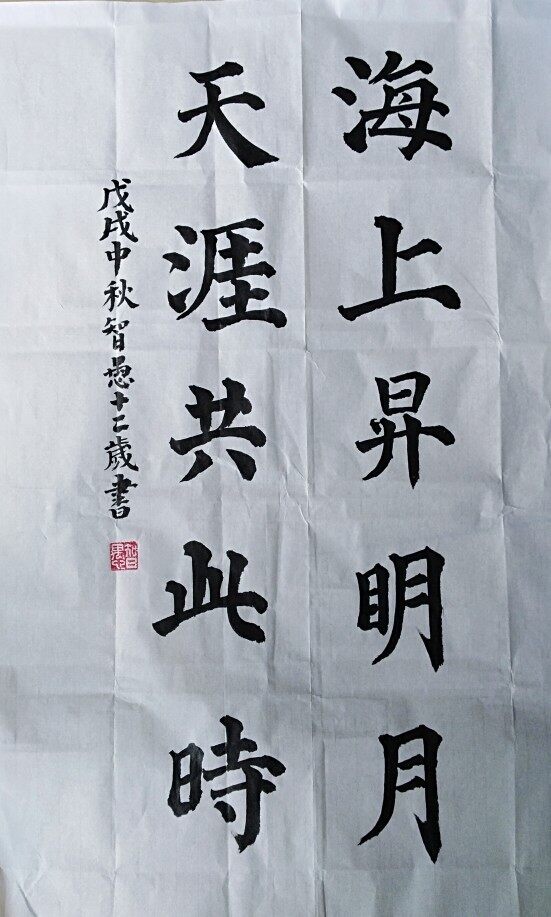 海上昇明月
天涯共此時
戊戌中秋智愚十二歲書